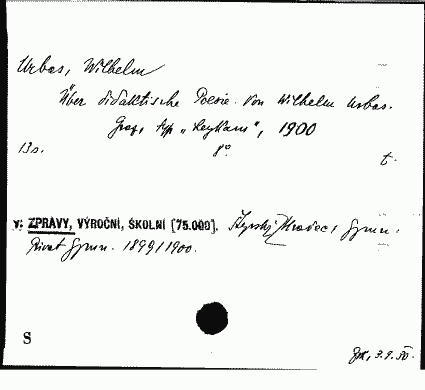 Urbas, Wilhelm
Über didaktische Poesie. Von Wilhelm Urbas.
Graz, typ „Leykam", 1900
13 s. 8° t.
v: ZPRÁVY, VÝROČNÍ, ŠKOLNÍ [75.000]. Štyrský Hradec, Gymn.
Privat Gymn. 1899/1900.
S
3.9.50.